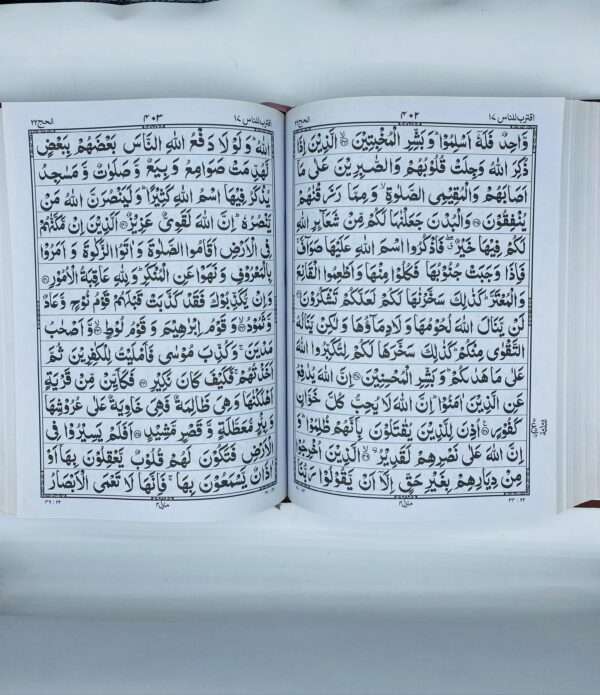 اقترب للناس ١٧
٤٠٢
الحج ٢٢
وَّاحِدٌ فَلَهٗۤ اَسْلِمُوْا ؕ وَبَشِّرِ الْمُخْبِتِيْنَ ۙ الَّذِيْنَ اِذَا
ذُكِرَ اللّٰهُ وَجِلَتْ قُلُوْبُهُمْ وَالصّٰبِرِيْنَ عَلٰى مَاۤ
اَصَابَهُمْ وَالْمُقِيْمِى الصَّلٰوةِ ۙ وَمِمَّا رَزَقْنٰهُمْ
يُنْفِقُوْنَ وَالْبُدْنَ جَعَلْنٰهَا لَكُمْ مِّنْ شَعَآئِرِ اللّٰهِ
لَكُمْ فِيْهَا خَيْرٌ ۖ فَاذْكُرُوا اسْمَ اللّٰهِ عَلَيْهَا صَوَآفَّ ۚ
فَاِذَا وَجَبَتْ جُنُوْبُهَا فَكُلُوْا مِنْهَا وَاَطْعِمُوا الْقَانِعَ
وَالْمُعْتَرَّ ؕ كَذٰلِكَ سَخَّرْنٰهَا لَكُمْ لَعَلَّكُمْ تَشْكُرُوْنَ
لَنْ يَّنَالَ اللّٰهَ لُحُوْمُهَا وَلَا دِمَآؤُهَا وَلٰكِنْ يَّنَالُهُ
التَّقْوٰى مِنْكُمْ ؕ كَذٰلِكَ سَخَّرَهَا لَكُمْ لِتُكَبِّرُوا اللّٰهَ
عَلٰى مَا هَدٰىكُمْ ؕ وَبَشِّرِ الْمُحْسِنِيْنَ اِنَّ اللّٰهَ يُدٰفِعُ
عَنِ الَّذِيْنَ اٰمَنُوْا ؕ اِنَّ اللّٰهَ لَا يُحِبُّ كُلَّ خَوَّانٍ
كَفُوْرٍ اُذِنَ لِلَّذِيْنَ يُقٰتَلُوْنَ بِاَنَّهُمْ ظُلِمُوْا ؕ وَ
اِنَّ اللّٰهَ عَلٰى نَصْرِهِمْ لَقَدِيْرٌ ۙ الَّذِيْنَ اُخْرِجُوْا
مِنْ دِيَارِهِمْ بِغَيْرِ حَقٍّ اِلَّاۤ اَنْ يَّقُوْلُوْا رَبُّنَا
منزل ٤
اقترب للناس ١٧
٤٠٣
الحج ٢٢
اللّٰهُ ؕ وَلَوْ لَا دَفْعُ اللّٰهِ النَّاسَ بَعْضَهُمْ بِبَعْضٍ
لَّهُدِّمَتْ صَوَامِعُ وَبِيَعٌ وَّ صَلَوٰتٌ وَّ مَسٰجِدُ
يُذْكَرُ فِيْهَا اسْمُ اللّٰهِ كَثِيْرًا ؕ وَلَيَنْصُرَنَّ اللّٰهُ مَنْ
يَّنْصُرُهٗ ؕ اِنَّ اللّٰهَ لَقَوِىٌّ عَزِيْزٌ اَلَّذِيْنَ اِنْ مَّكَّنّٰهُمْ
فِى الْاَرْضِ اَقَامُوا الصَّلٰوةَ وَ اٰتَوُا الزَّكٰوةَ وَ اَمَرُوْا
بِالْمَعْرُوْفِ وَ نَهَوْا عَنِ الْمُنْكَرِ ؕ وَلِلّٰهِ عَاقِبَةُ الْاُمُوْرِ
وَ اِنْ يُّكَذِّبُوْكَ فَقَدْ كَذَّبَتْ قَبْلَهُمْ قَوْمُ نُوْحٍ وَّعَادٌ
وَّثَمُوْدُ ۙ وَ قَوْمُ اِبْرٰهِيْمَ وَ قَوْمُ لُوْطٍ ۙ وَّ اَصْحٰبُ
مَدْيَنَ ۚ وَكُذِّبَ مُوْسٰى فَاَمْلَيْتُ لِلْكٰفِرِيْنَ ثُمَّ
اَخَذْتُهُمْ ۚ فَكَيْفَ كَانَ نَكِيْرِ فَكَاَيِّنْ مِّنْ قَرْيَةٍ
اَهْلَكْنٰهَا وَهِىَ ظَالِمَةٌ فَهِىَ خَاوِيَةٌ عَلٰى عُرُوْشِهَا
وَ بِئْرٍ مُّعَطَّلَةٍ وَّ قَصْرٍ مَّشِيْدٍ اَفَلَمْ يَسِيْرُوْا فِى
الْاَرْضِ فَتَكُوْنَ لَهُمْ قُلُوْبٌ يَّعْقِلُوْنَ بِهَاۤ اَوْ
اٰذَانٌ يَّسْمَعُوْنَ بِهَا ۚ فَاِنَّهَا لَا تَعْمَى الْاَبْصَارُ
منزل ٤